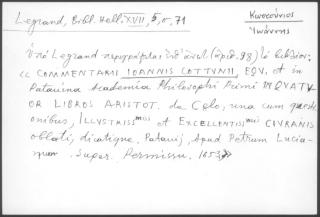 Legrand, Bibl. Hell. XVII, 5, σ, 71
Κωττούνιος
Ἰωάννης
Ὑπὸ Legrand περιγράφεται ὑπ' ἀριθ. 98) τὸ βιβλίον:
« COMMENTARII IOANNIS COTTUNII, EQU. et in
Patauina Academia Philosophi Primi IN QVATV
OR LIBROS ARISTOT. de Cęlo, una cum quęsti
onibus, ILLVSTRISSmis et EXCELLENTISSmis CIVRANIS
oblati, dicatique. Patauij, Apud Petrum Lucia-
num. Super. Permissu. 1653,»